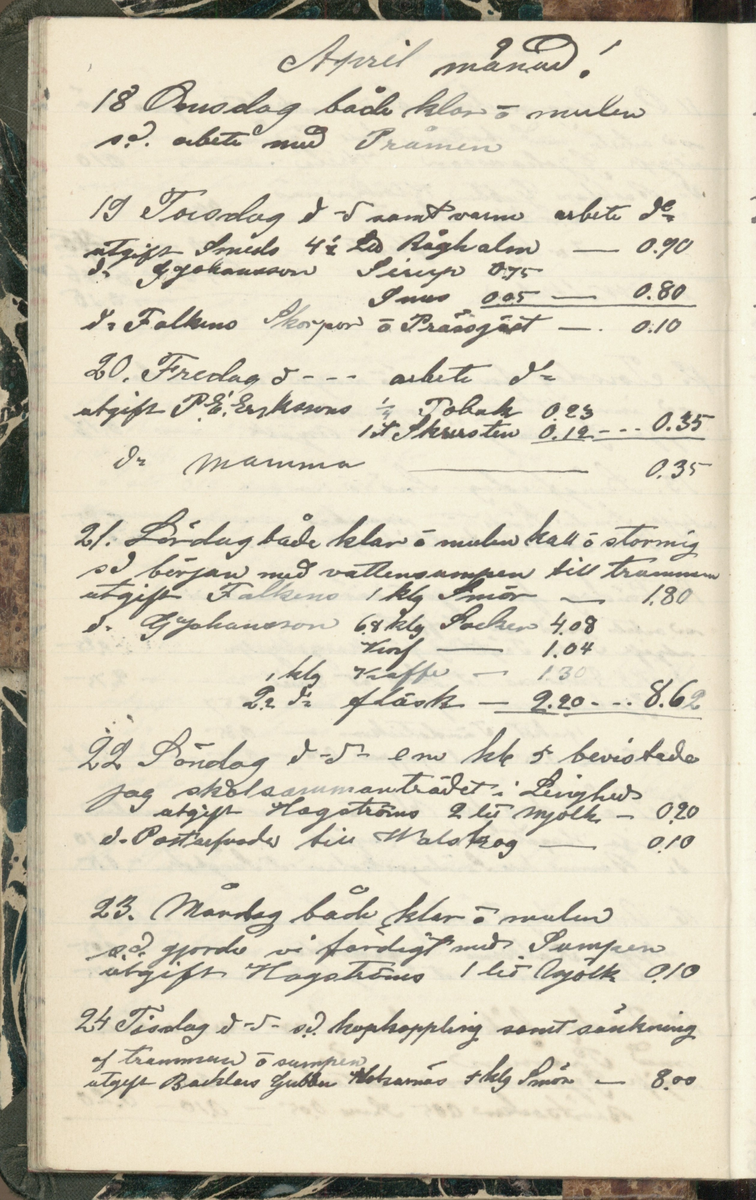 April månad!
18 Onsdag både klar o mulen
s.d. arbete med Pråmen
19 Torsdag d-o samt varm arbete do
utgift Smeds 4½ Råghalm — 0.90
do G Johansson Sirup 0.75
Snus 0.05 — 0.80
do Falkens Skorpor o Pressjäst — 0.10
20. Fredag d - - - arbete do
utgift P.E. Erikssons ¼ Tobak 0.23
1 st Skursten 0.12 - - - 0.35
do Mamma — 0.35
21. Lördag både klar o mulen kall o stormig
s.d början med vattensumpen till trumman
utgift Falkens 1 klg Smör — 1.80
do G Johansson 6.8 klg Socker 4.08
Korf — 1.04
1 klg Kaffe — 1.30
2 do fläsk — 2.20 - - - 8.62
22 Söndag d-o- em kl. 5 bevistade
jag skolsammanträdet i Linghed
utgift Hagströms 2 lit mjölk — 0.20
do Postarfvode till Walskog — 0.10
23. Måndag både klar o mulen
s.d. gjorde vi färdigt med Sumpen
utgift Hagströms 1 lit Mjölk 0.10
24 Tisdag d-o- s.d. hopkoppling samt sänkning
af trumman o sumpen
utgift Backlars Gubben 5 klg Smör — 8.00